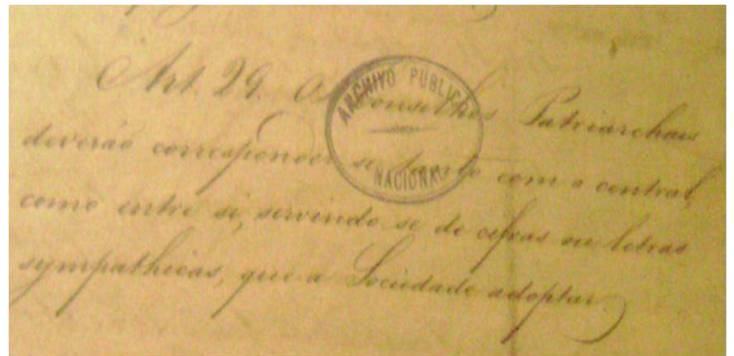 Art. 29. Os Conselhos Patriarchais
deverão corresponder se tanto com o central,
como entre si, servindo se de cifras ou letras
sympathicas, que a Sociedade adoptar.
ARCHIVO PUBLICO
NACIONAL